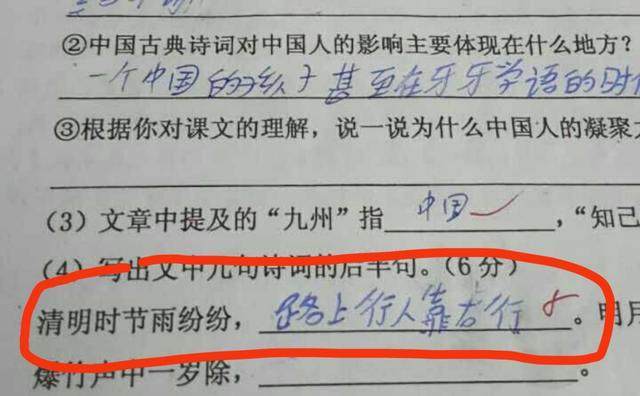 ②中国古典诗词对中国人的影响主要体现在什么地方?
一个中国的孩子甚至在牙牙学语的时
③根据你对课文的理解，说一说为什么中国人的凝聚力
(3)文章中提及的“九州”指中国，“知己
(4)写出文中几句诗词的后半句。(6分)
清明时节雨纷纷，路上行人靠右行。明月
爆竹声中一岁除，。